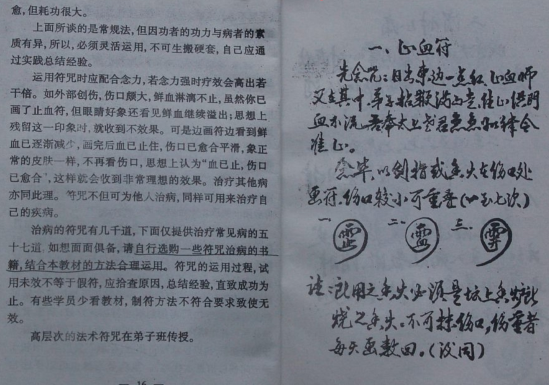 愈,但耗功很大。
上面所谈的是常规法,但因功者的功力与病者的素
质有异,所以,必须灵活运用,不可生搬硬套,自己应通
过实践总结经验。
运用符咒时应配合念力,若念力强时疗效会高出若
干倍。如外部创伤,伤口颇大,鲜血淋漓不止,虽然你已
画了止血符,但眼睛好象还看见鲜血继续溢出;思想上
残留这一印象时,就收到不效果。可是边画符边看到鲜
血已逐渐减少,画完后血已止住,伤口已愈合平滑,象正
常的皮肤一样,不再看伤口,思想上认为“血已止,伤口
已愈合”,这样就会收到非常理想的效果。治疗其他病
亦同此理。符咒不但可为他人治病,同样可用来治疗自
己的疾病。
治病的符咒有几千道,下面仅提供治疗常见病的五
十七道。如想面面俱备,请自行选购一些符咒治病的书
籍,结合本教材的方法合理运用。符咒的运用过程,试
用未效不等于假符,应洽查原因,总结经验,直致成功为
止。有些学员少看教材,制符方法不符合要求致使无
效。
高层次的法术符咒在弟子班传授。
— 16 —
一、止血符
先念咒:日出东边一点红,
血不流,吾奉太上老君急急如律令
准止。
念毕,以剑指或香火在伤口处
画符,伤口较小可重叠(一至七次)
一 二 三
注:所用之香火必须是坛上香炉
烧之香火。不可抹伤口,伤重者
每天画数回。(设同)